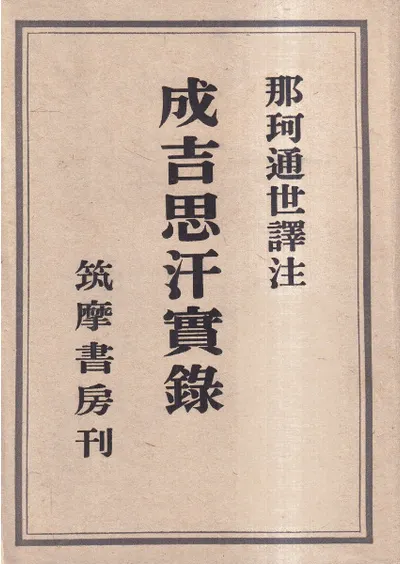 那珂通世譯注
成吉思汗實錄
筑摩書房刊